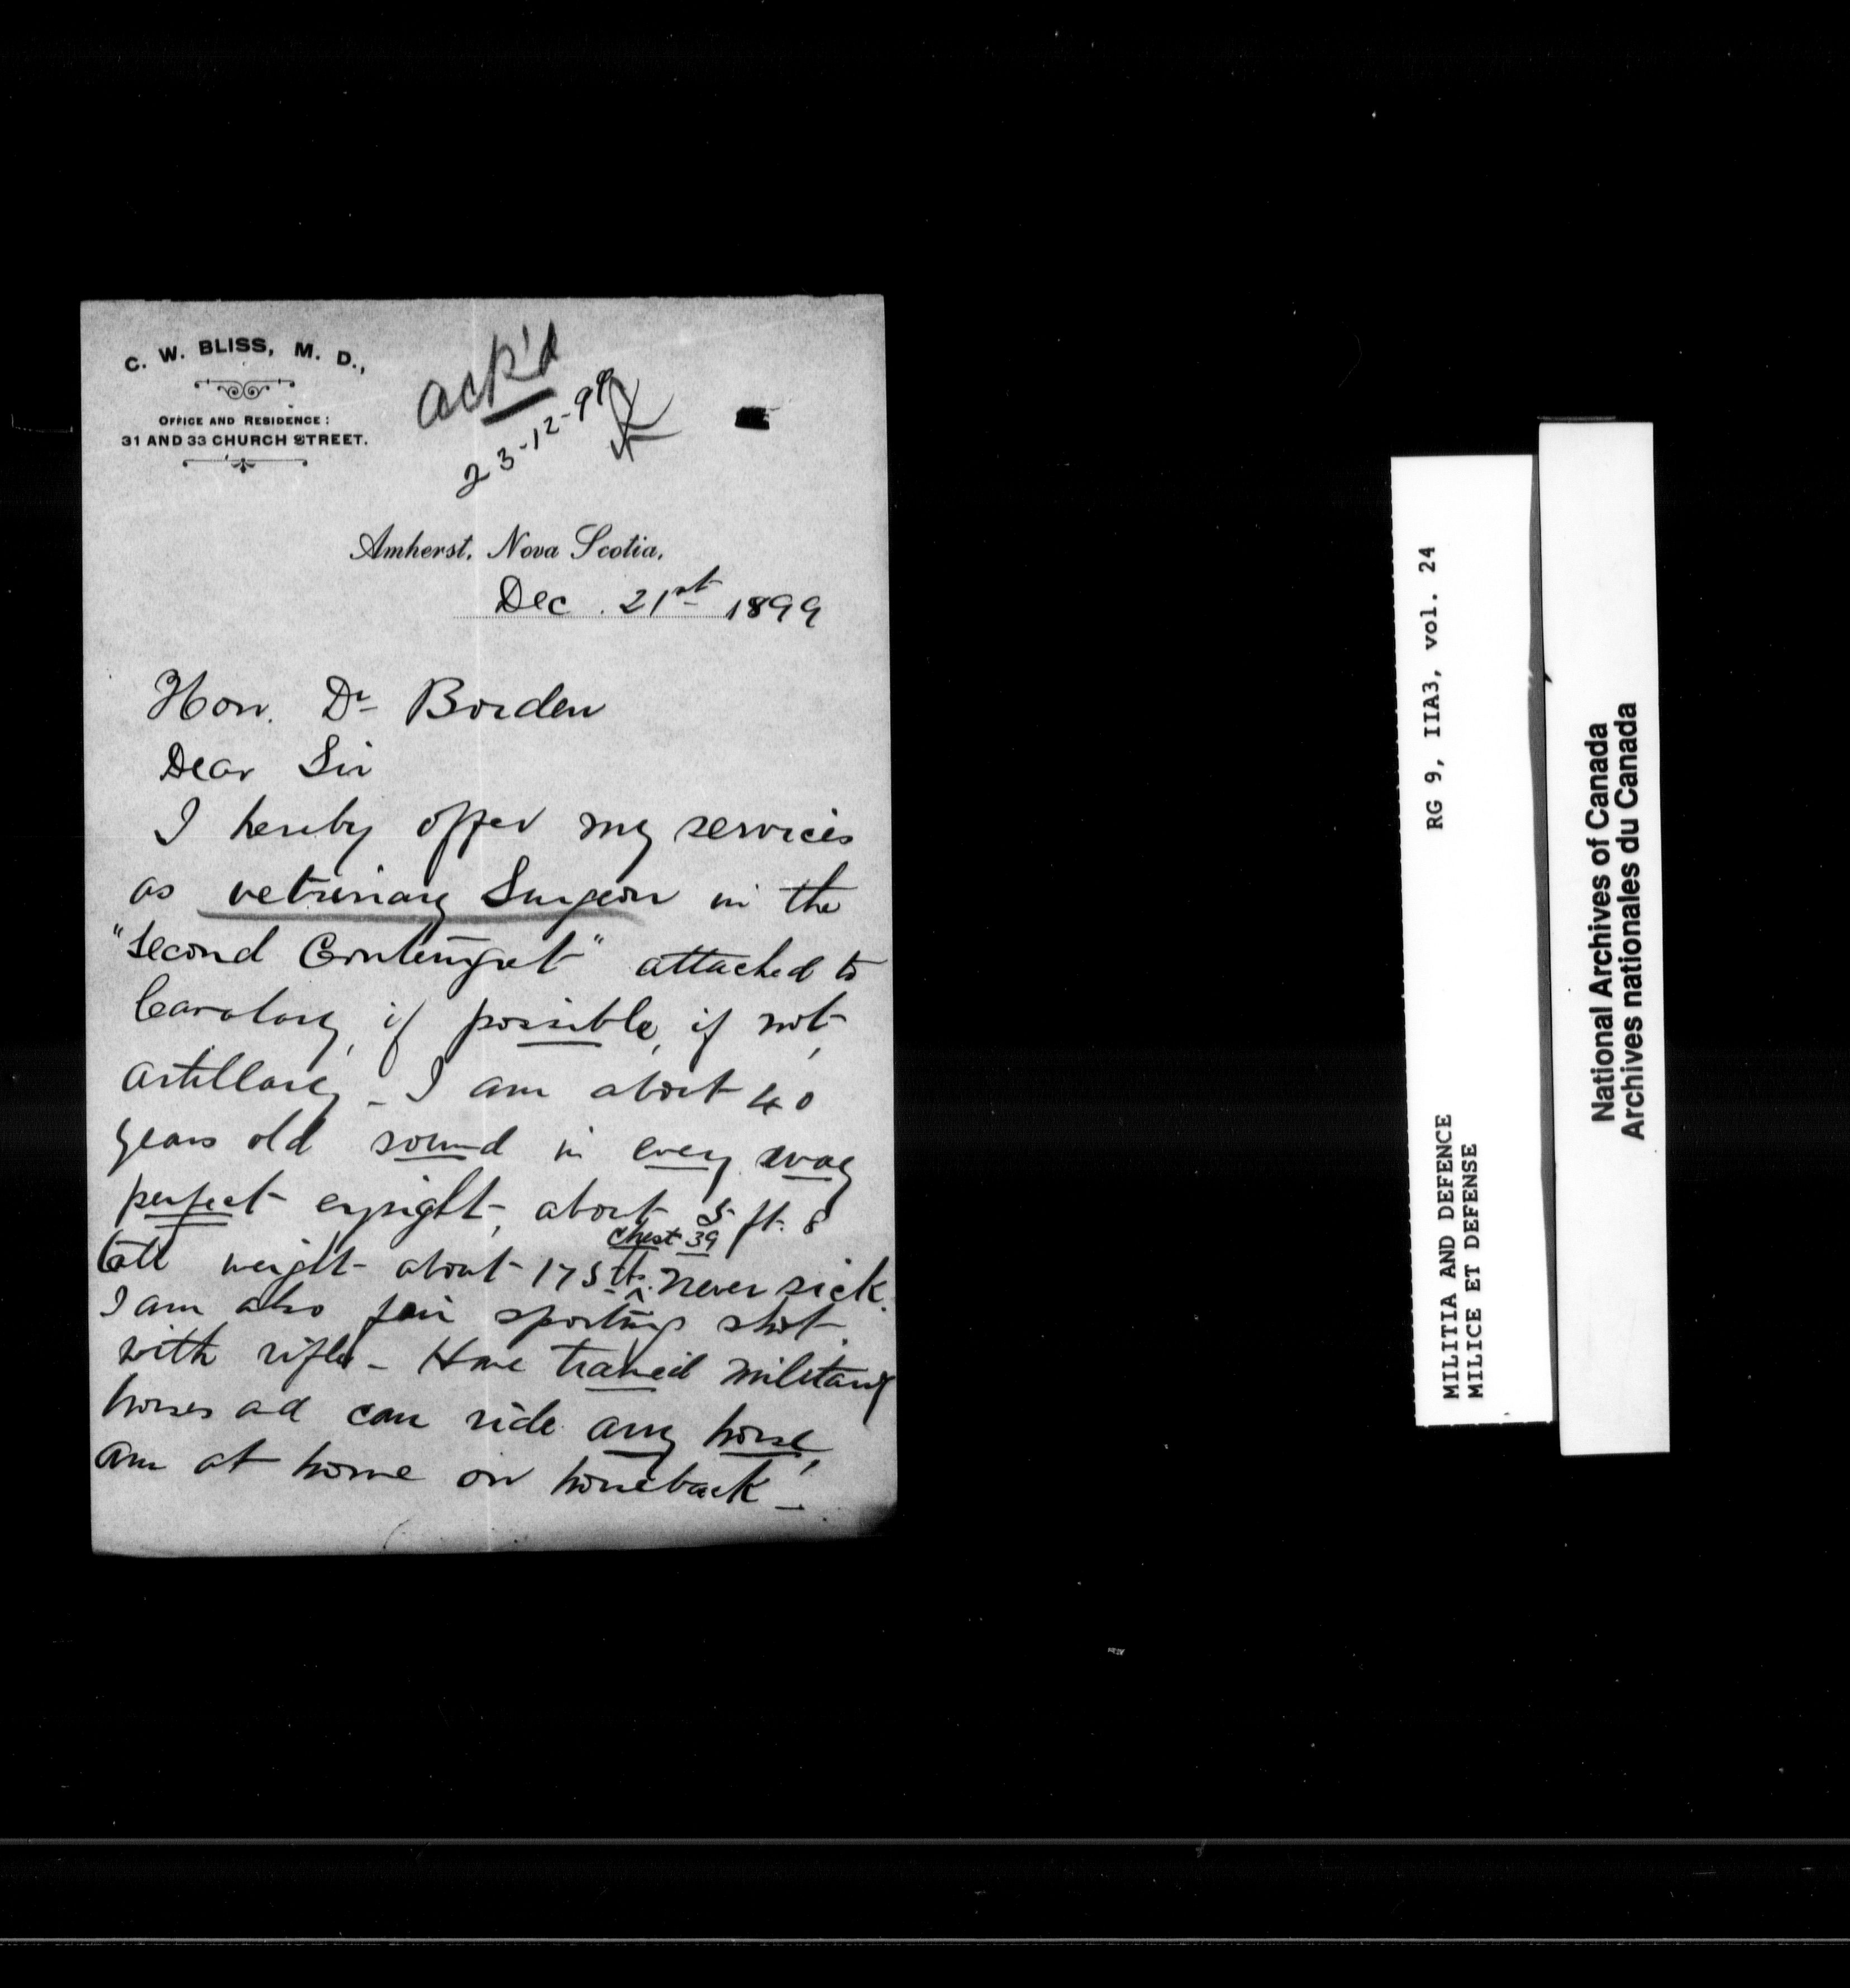 C. W. BLISS, M. D.,
OFFICE AND RESIDENCE:
31 AND 33 CHURCH STREET.
ack'd
23-12-99
Amherst, Nova Scotia,
Dec. 21st 1899
Hon. Dr Borden
Dear Sir
I hereby offer my services
as vetrinary Surgeon in the
"Second Contingnet" attached to
Cavalary, if possible, if not,
artillary - I am about 40
years old sound in every way
perfect eyesight, about 5 ft. 8
chest 39
tall weight about 175 lb. never sick.
I am also fair sporting shot
with rifle - Have trained military
horses and can ride any horse,
am at home on horseback -
RG 9, IIA3, vol. 24
MILITIA AND DEFENCE
MILICE ET DEFENSE
National Archives of Canada
Archives nationales du Canada